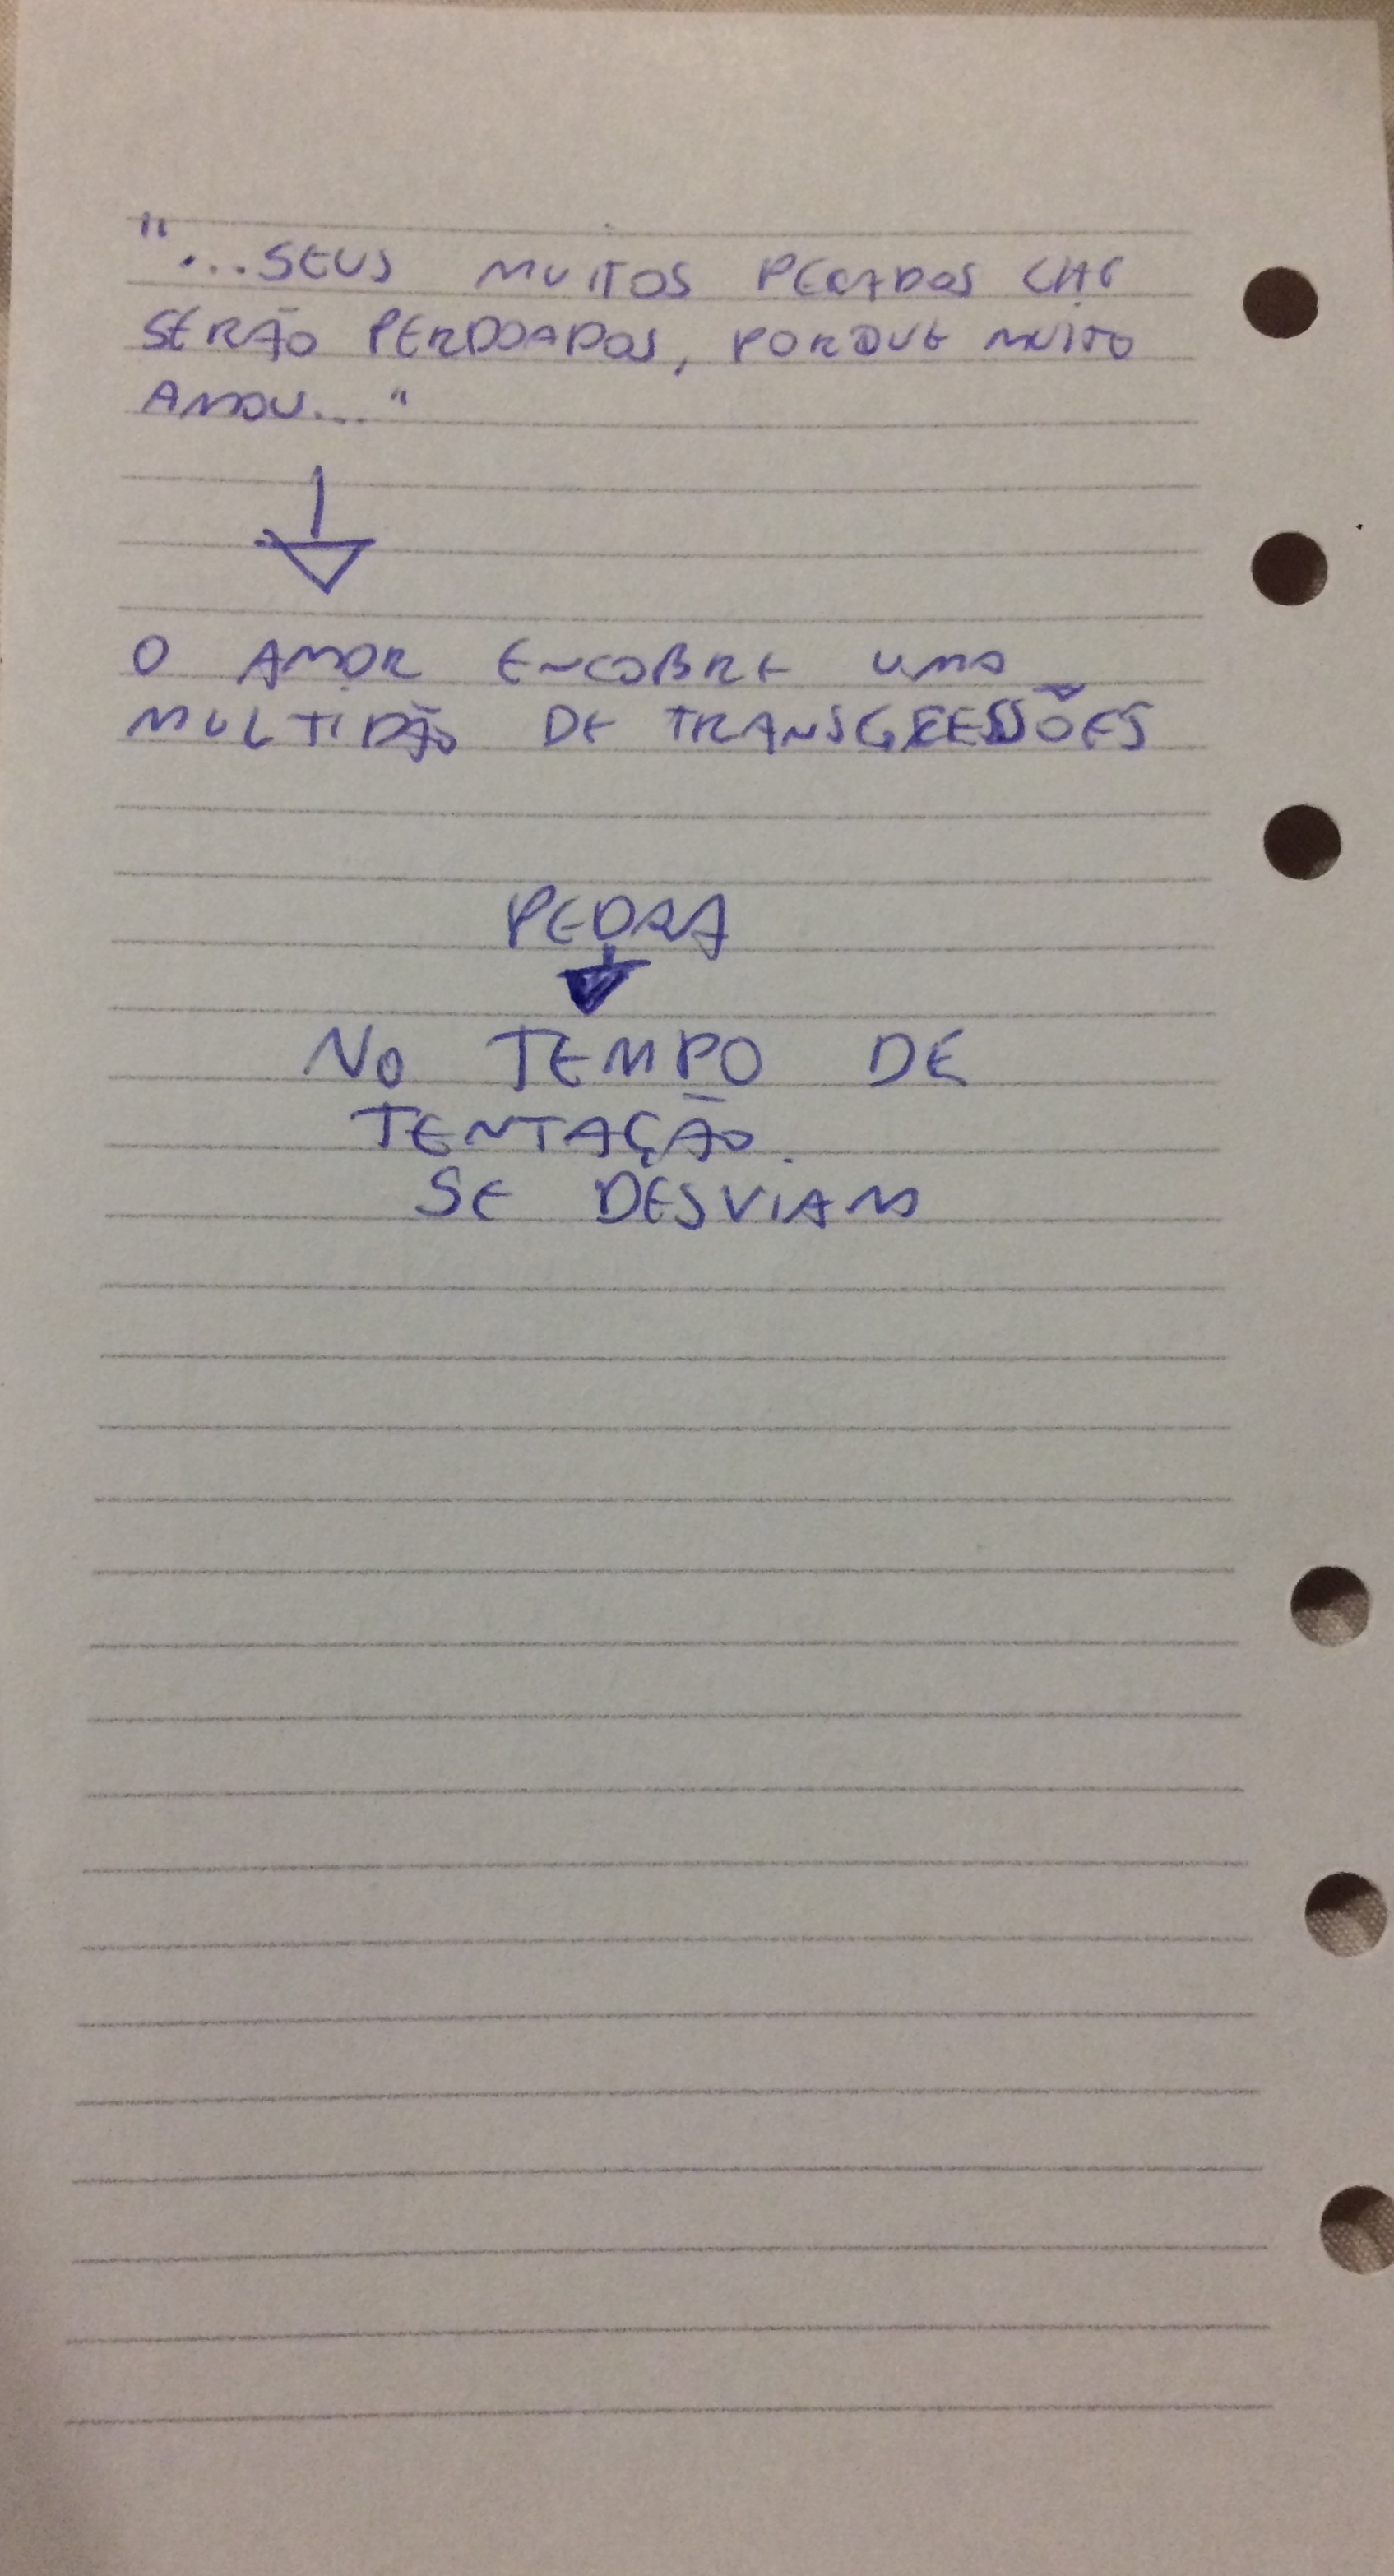 "...SEUS MUITOS PECADOS LHE
SERÃO PERDOADOS, PORQUE MUITO
AMOU...."
O AMOR ENCOBRE UMA
MULTIDÃO DE TRANSGRESSÕES
PEDRA
NO TEMPO DE
TENTAÇÃO.
SE DESVIAM